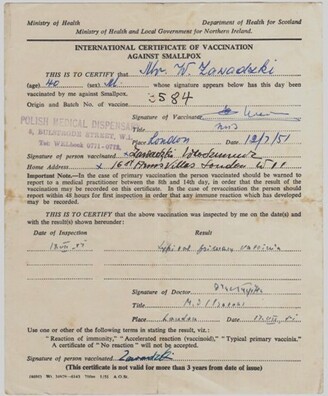 Ministry of Health Department of Health for Scotland
Ministry of Health and Local Government for Northern Ireland.
INTERNATIONAL CERTIFICATE OF VACCINATION
AGAINST SMALLPOX
THIS IS TO CERTIFY that Mr W. Zawadzki
(age) 40 sex) M. whose signature appears below has this day been
vaccinated by me against Smallpox.
Origin and Batch No. of vaccine 3584
POLISH MEDICAL DISPENSARY
Signature of Vaccinator
Title
Place London 12/7/51
Signature of person vaccinated
Home Address London W.11
Important Note.—In the case of primary vaccination the person vaccinated should be warned to
report to a medical practitioner between the 8th and 14th day, in order that the result of the
vaccination may be recorded on this certificate. In the case of revaccination the person should
report within 48 hours for first inspection in order that any immune reaction which has developed
may be recorded.
THIS IS TO CERTIFY that the above vaccination was inspected by me on the date(s) and
with the result(s) shewn hereunder:
Date of Inspection Result
Typical primary vaccinia
Signature of Doctor
Title
Place London
Use one or other of the following terms in stating the result, viz.:
"Reaction of immunity," "Accelerated reaction (vaccinoid)," "Typical primary vaccinia."
A certificate of "No reaction" will not be accepted.
Signature of person vaccinated Zawadzki
(This certificate is not valid for more than 3 years from date of issue)